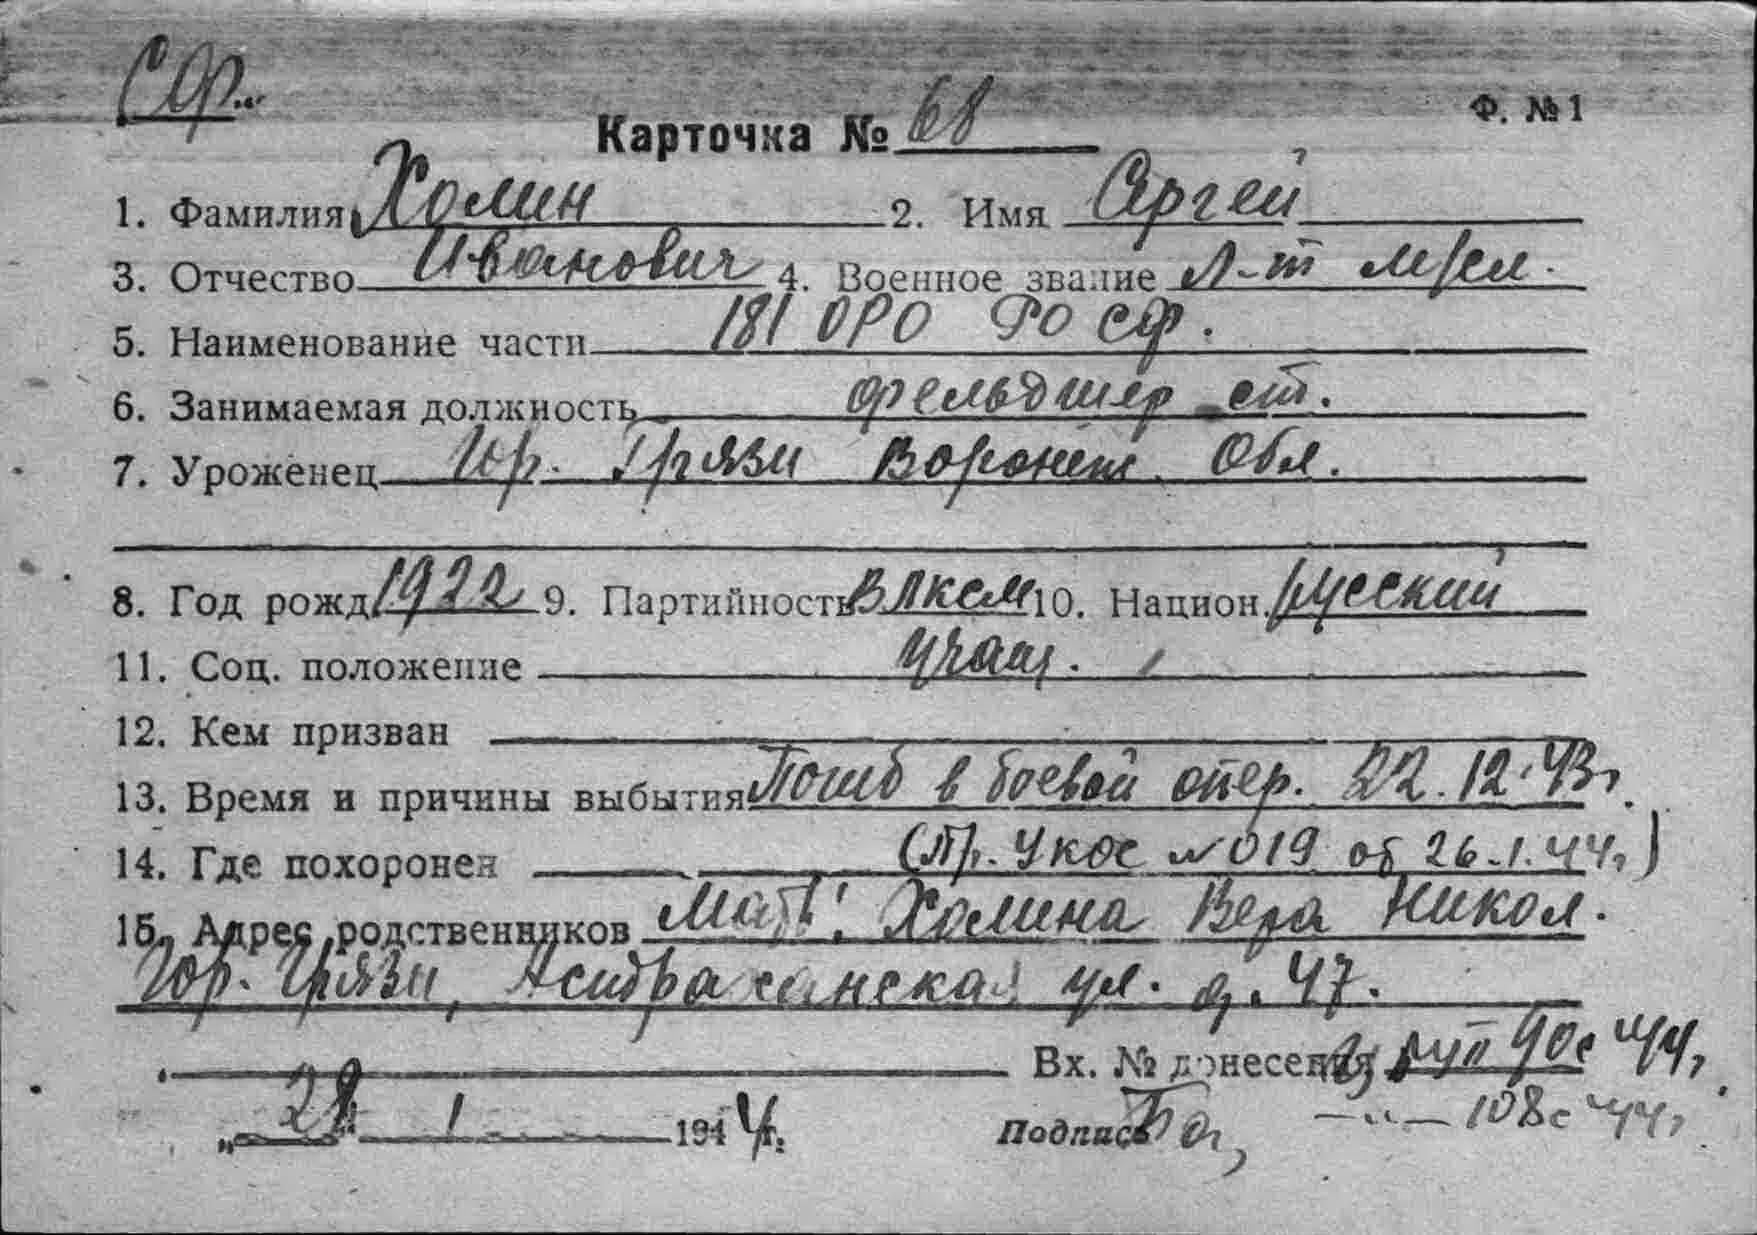 СФ.
Ф. № 1
Карточка № 68
1. Фамилия Холин 2. Имя Сергей
3. Отчество Иванович 4. Военное звание Л-т м/сл.
5. Наименование части 181 ОРО РО СФ.
6. Занимаемая должность фельдшер ст.
7. Уроженец Гор. Грязи Воронеж. Обл.
8. Год рожд. 1922 9. Партийность ВЛКСМ 10. Национ. русский
11. Соц. положение учащ.
12. Кем призван
13. Время и причины выбытия Погиб в боевой опер. 22.12.43г.
14. Где похоронен (Пр. УКОС № 019 от 26.1.44г.)
15. Адрес родственников Мать: Холина Вера Никол.
Гор. Грязи, Астраханская ул. д. 47.
Вх. № донесения 90с 44г.
„29“ 1 1944г. Подпись —"— 108с 44г.